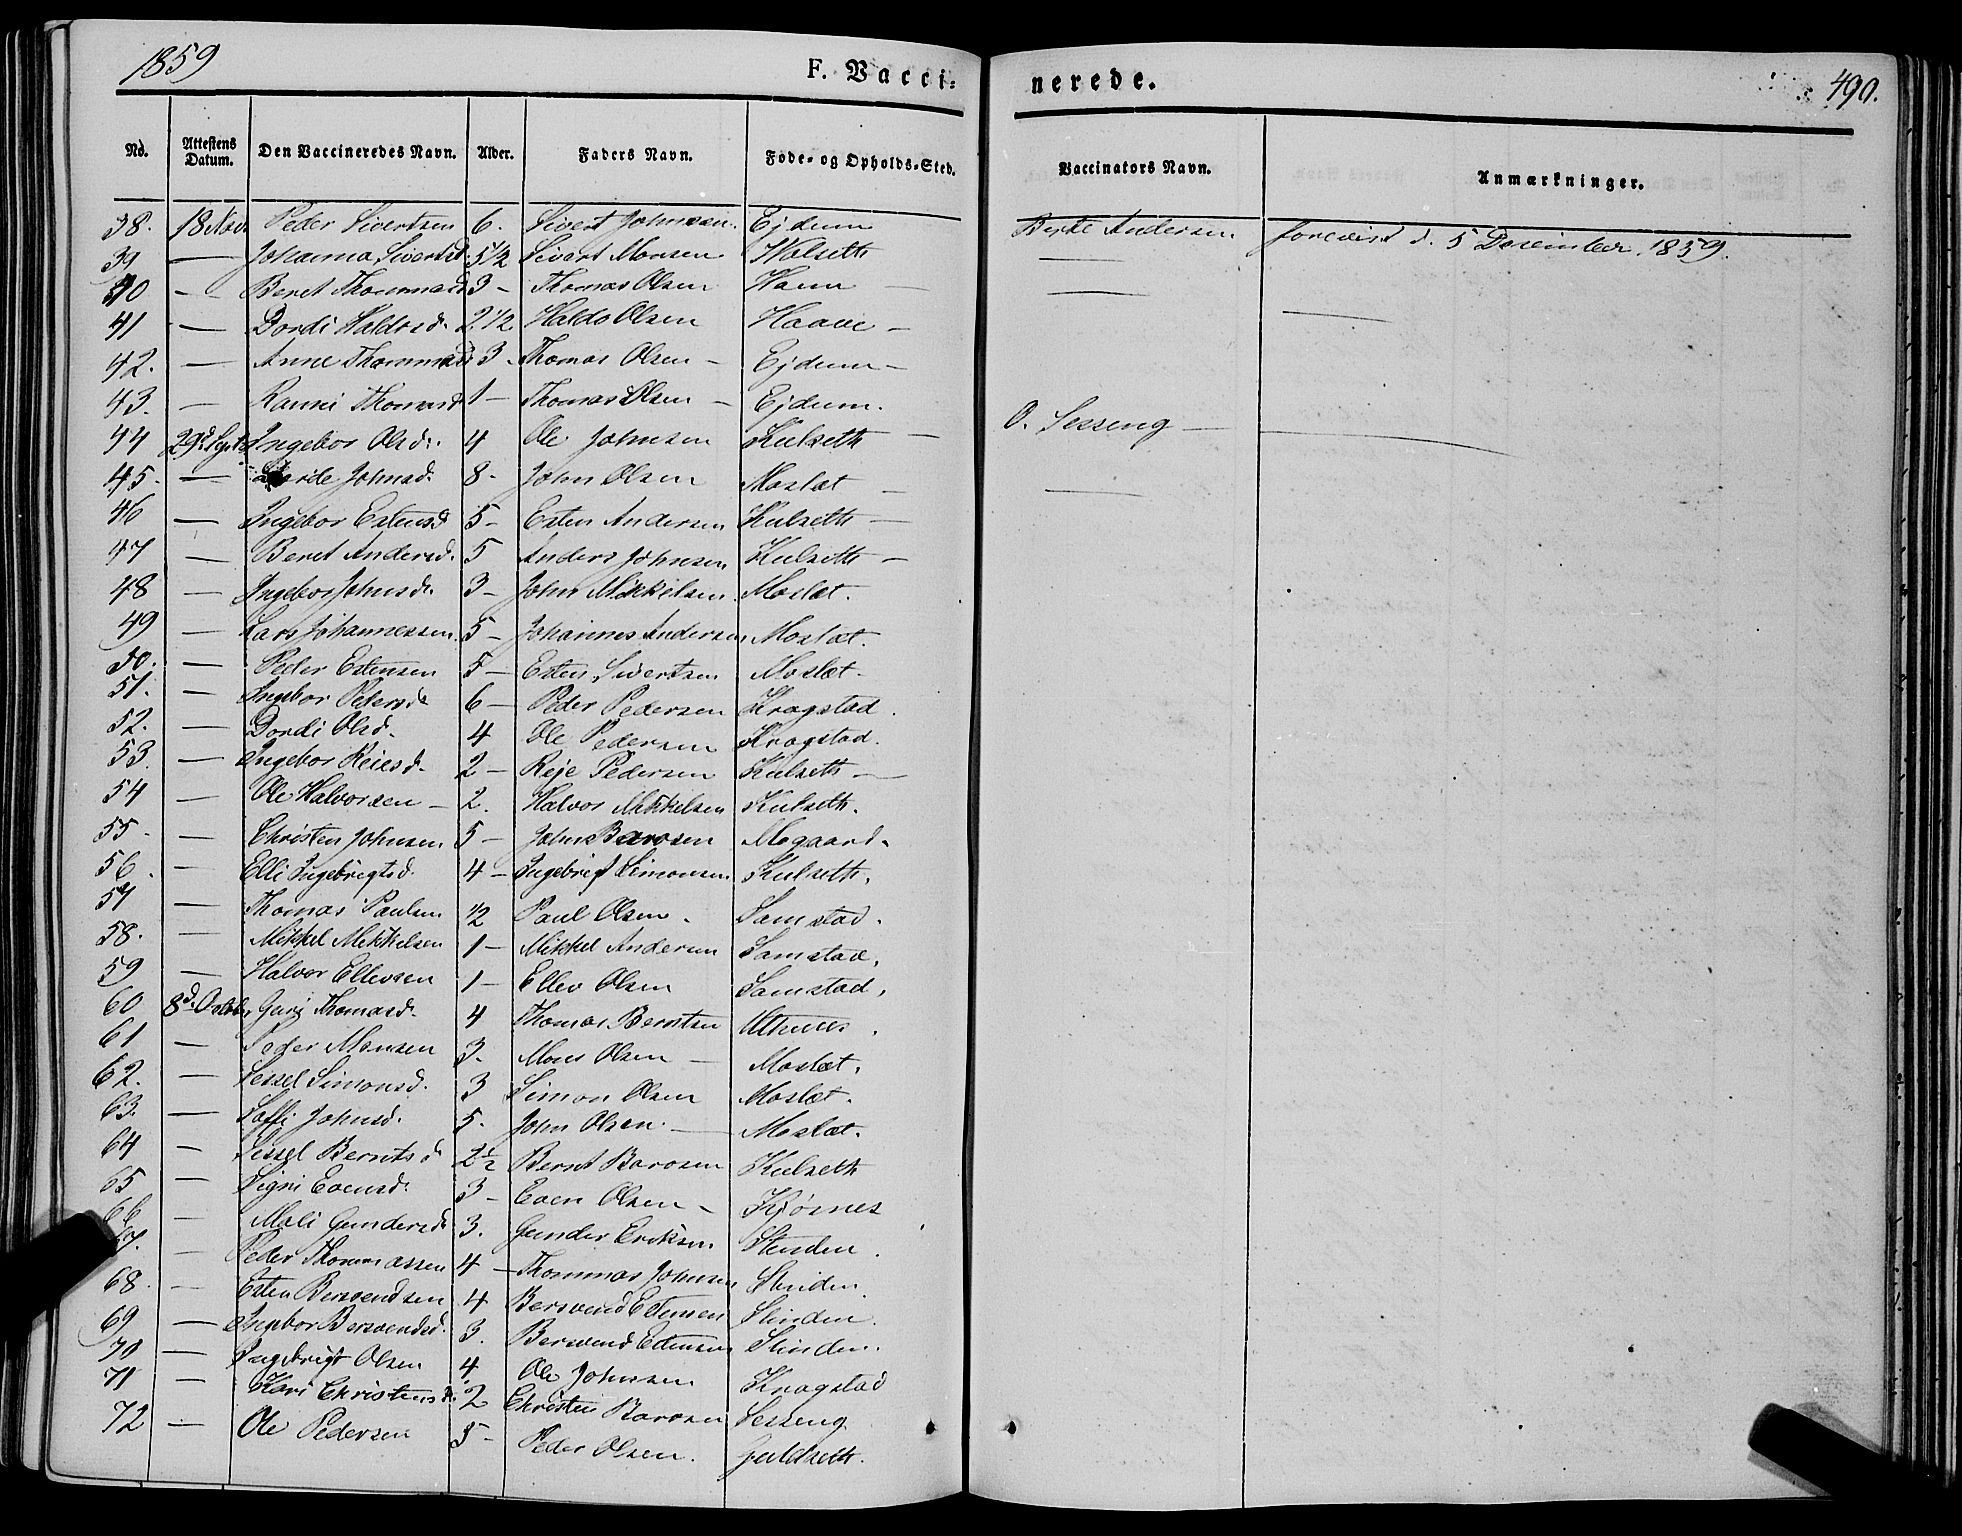 1859
F. Vacci-
nerede.
490.
No. Attestens Datum. Den Vaccineredes Navn. Alder. Faders Navn. Føde- og Opholds-Sted. Vaccinators Navn. Anmærkninger.
38. 18 Nov. Peder Sivertsen 6. Sivert Johnssen. Ejdum Berte Andersen forevist d. 5 December 1859.
39 — Johanna Sivertsd. 5 1/2 Sivert Monsen Walseth —
40 — Beret Thommasd 3 – Thomas Olsen Ham — —
41 — Dordi Haldosd. 2 1/2 Haldo Olsen Haave – —
42. — Anne Thommasd 3 – Thomas Olsen – Ejdum –
43. — Ranni Thomasd 1 – Thomas Olsen – Ejdum.
44 29d Sept Ingebor Olsd. 4 Ole Johnsen Kulseth — O. Sesseng — —
45. — Johnsd. 8 – John Olsen Moslæt — —
46 — Ingebor Estensd 5 – Esten Andersen Kulseth —
47 — Beret Andersd. 5 Anders Johnsen Kulseth –
48 — Ingebor Johnsd. 3 – John Mikkelsen Moslæt.
49 — Lars Johannessen. 5 – Johannes Andersen Moslæt.
50. — Peder Estensen 5 – Esten Sivertsen Moslæt.
51. — Ingebor Pedersd. 6 – Peder Pedersen Kragstad.
52. — Dordi Olsd. 4 Ole Pedersen Kragstad.
53 — Ingebor Reiesd. 2 – Reje Pedersen Kulseth —
54 — Ole Halvorsen – 2. Halvor Mikkelsen Kulseth.
55. — Christen Johnsen 5 – John Barosen Mogaard.
56. — Elli Ingebrigtsd. 4 – Ingebrigt Simonsen Kulseth.
57 — Thomas Paulsen 1/2 Paul Olsen. Samstad.
58. — Mikkel Mikkelsen 1 – Mikkel Andersen Samstad.
59 — Halvor Ellevsen 1 – Ellev Olsen Samstad.
60 8d. Octbr. Guri Thomasd. 4 Thomas Berntsen
61 — Peder Monsen 3. Mons Olsen — Moslæt.
62. — Sessel Simonsd. 3 Simon Olsen Moslæt.
63. — Soffi Johnsd. 5. John Olsen. — Moslæt.
64 — Sessel Berntsd 2 1/2 Bernt Barosen Kulseth
65 — Signi Evensd. 3 – Even Olsen – Kjøsnes
66 — Mali Gundersd 3. Gunder Eriksen Stenden.
67. — Peder Thommassen 4 – Thommas Johnsen Slinden.
68. — Esten Bersvendsen 4 Bersvend Estensen Slinden.
69 — Ingebor Bersvendsd. 3. Bersvend Estensen Slinden.
70 — Ingebrigt Olsen 4 Ole Johnsen Kragstad
71 — Kari Christensd. 2 Christen Barosen Sesseng
72 — Ole Pedersen 5 – Peder Olsen. Guldseth.